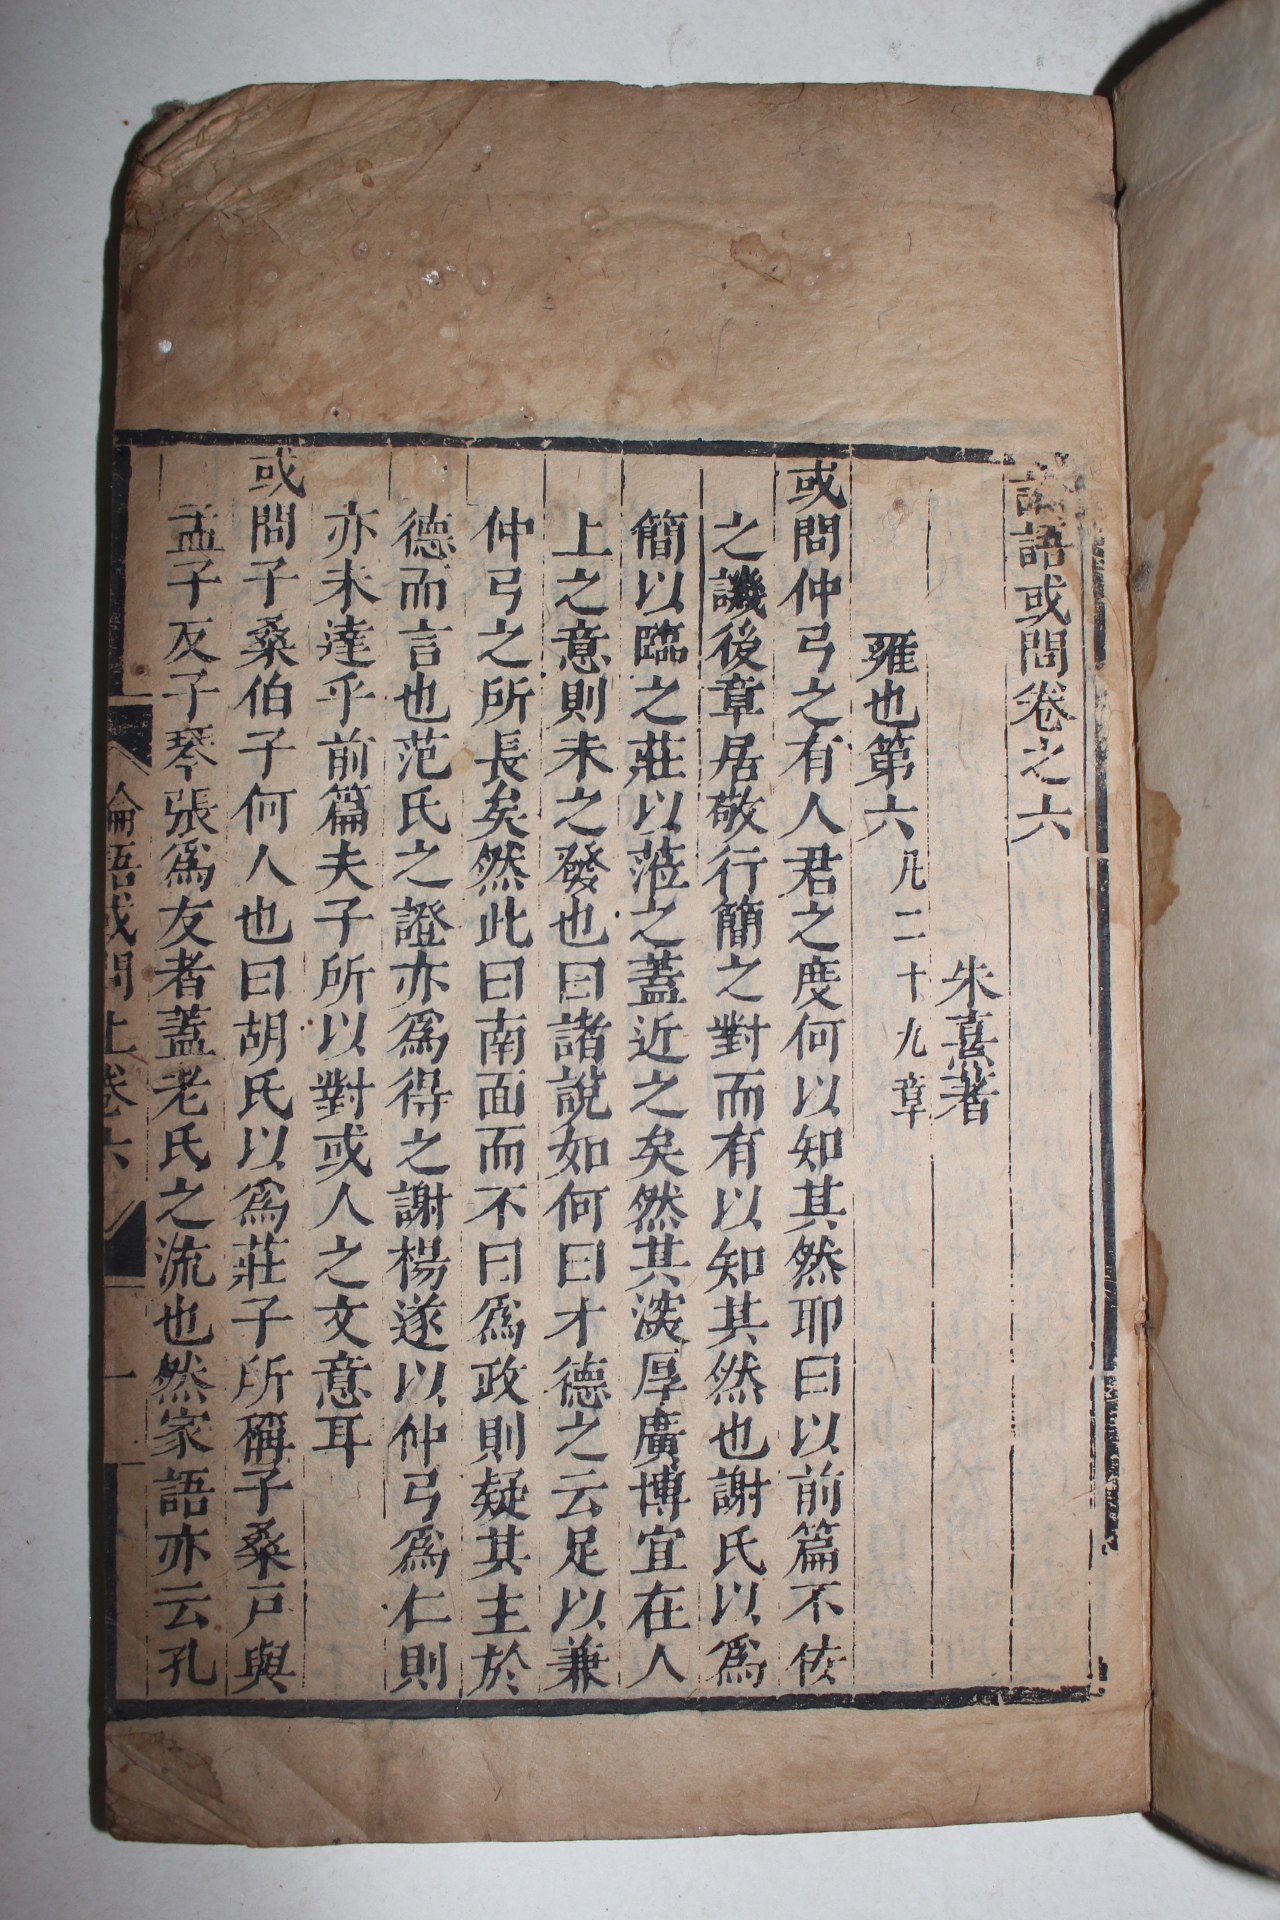 論語或問卷之六
朱熹著
雍也第六凡二十九章
或問仲弓之有人君之度何以知其然耶曰以前篇不佞
之譏後章居敬行簡之對而有以知其然也謝氏以爲
簡以臨之莊以蒞之蓋近之矣然其淡厚廣博宜在人
上之意則未之發也曰諸說如何曰才德之云足以兼
仲弓之所長矣然此曰南面而不曰爲政則疑其主於
德而言也范氏之證亦爲得之謝楊遂以仲弓爲仁則
亦未達乎前篇夫子所以對或人之文意耳
或問子桑伯子何人也曰胡氏以爲莊子所稱子桑戶與
孟子反子琴張爲友者蓋老氏之流也然家語亦云孔
論語或問上卷六 一